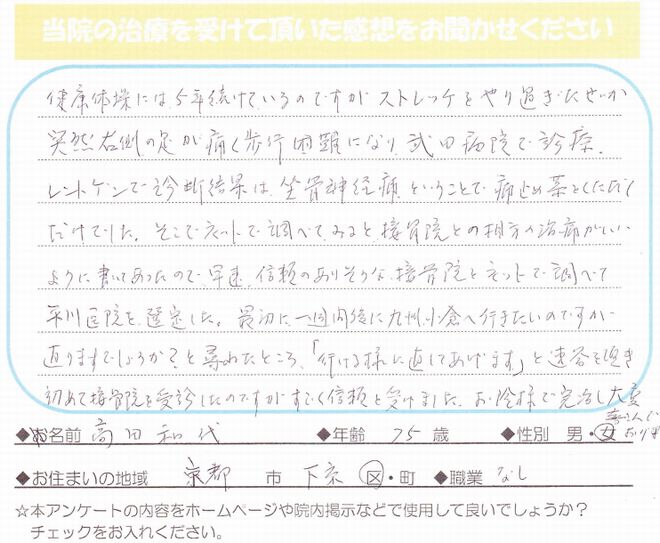 当院の治療を受けて頂いた感想をお聞かせください
健康体操には、5年続けているのですがストレッチをやり過ぎたせいか
突然右側の足が痛く歩行困難になり、武田病院で診療。
レントゲンで診断結果は、坐骨神経痛ということで痛止め薬をいただく
だけでした。そこでネットで調べてみると接骨院との相方の治療がいい
ように書いてあったので、早速、信頼のありそうな接骨院をネットで調べて
平川医院を選定した。最初に、一週間後に九州小倉へ行きたいのですが
直りますでしょうか?と尋ねたところ、「行ける様に直してあげます」と速答を頂き
初めて接骨院を受診したのですがすごく信頼を受けました。お陰様で完治し大変
喜んで
おります
◆お名前 高田和代 ◆年齢 75歳 ◆性別 男・女
◆お住まいの地域 京都 市 下京 区・町 ◆職業 なし
☆本アンケートの内容をホームページや院内掲示などで使用して良いでしょうか?
チェックをお入れください。